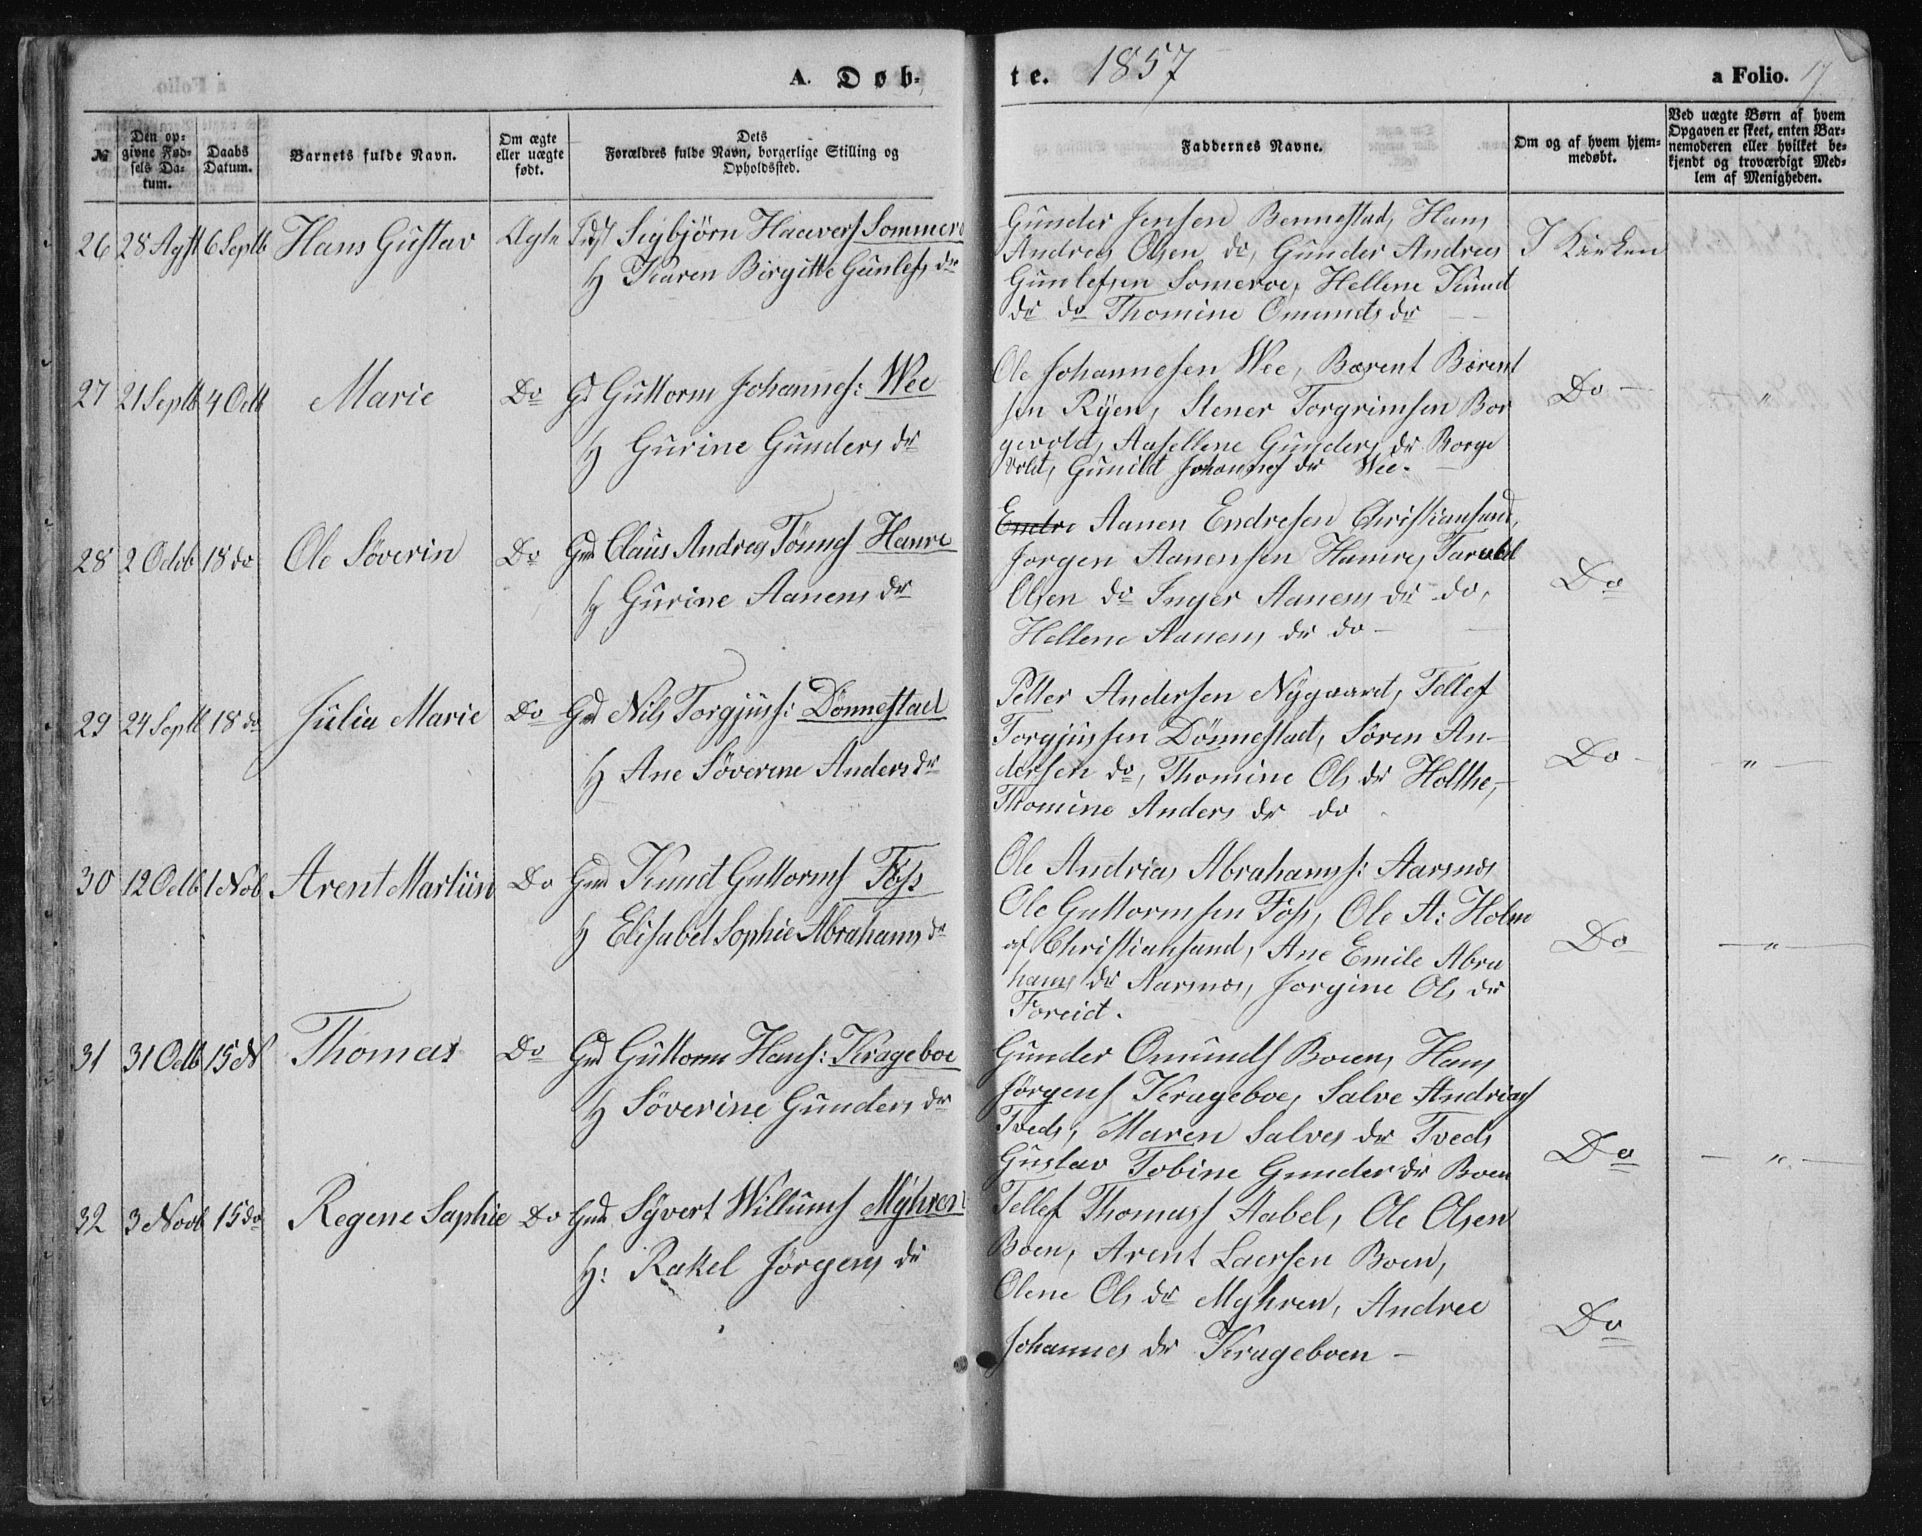 A. Døb-
te. 1857
a Folio. 17
№
Den op-
givne Fød-
sels Da-
tum.
Daabs
Datum.
Barnets fulde Navn.
Om ægte
eller uægte
født.
Dets
Forældres fulde Navn, borgerlige Stilling og
Opholdssted.
Faddernes Navne.
Om og af hvem hjem-
medøbt.
Ved uægte Børn af hvem
Opgaven er skeet, enten Bar-
nemoderen eller hvilket be-
kjendt og troværdigt Med-
lem af Menigheden.
26 28 Agst 6 Septb Hans Gustav Ægte Sigbjörn Haavers Sommero
H Karen Birgitte Gunlefs dr
Gunder Jensen Bennestad, Hans
Andreas Olsen do, Gunder Andreas
Gunlefsen Someroe, Hellene Knud
dr do Thomine Omunds dr
I Kirken
27 21 Septb 4 Octb Marie Do Gd Guttorm Johannes: Wee
H Gurine Gunders dr
Ole Johannesen Wee, Bærent Bærent
sen Ryen, Stener Torgrimsen Bor
gevold, Aasellene Gunders dr Borge
vold, Gunild Johannes dr Wee.
Do "
28 2 Octob 18 do Ole Söverin Do Gmd Claus Andreas Tönnes Hamre
H Gurine Aanens dr
Endre Aanen Endresen Christiansand,
Jorgen Aanensen Hamre, Tarald
Olsen do Inger Aanens dr do,
Hellene Aanens dr do -
Do
29 24 Septb 18 do Julia Marie Do Gmd Nils Torgjus: Dönnestad
H Ane Söverine Anders dr
Petter Andersen Nygaard, Tellef
Torgjussen Dönnestad, Sören An-
dersen do, Thomine Ols dr Holthe,
Thomine Anders dr do
Do "
30 12 Octb 1 Nob Arent Martiin Do Gmd Knud Guttorms Föss
H Elisabet Sophie Abrahams dr
Ole Andrias Abrahams: Aarsnes
Ole Guttormsen Föss, Ole A: Holm
af Christiansand, Ane Emile Abra
hams dr Aarsnes, Jorgine Ols dr
Foreid.
Do "
31 31 Octb 15 N Thomas Do Gmd Guttorm Hans: Krageboe
H Söverine Gunders dr
Gunder Omunds Boen, Hans
Jörgens Krageboe, Salve Andrias
Tveds, Maren Salves dr Tveds
Gustav Tobine Gunders dr Boen
Do "
32 3 Novb 15 do Regene Saphie Do Gmd Syvert Willums Myhren
H: Rakel Jörgens dr
Tellef Thomass Aabel, Ole Olsen
Boen, Arent Laersen Boen,
Olene Ols dr Myhren, Andree
Johannes dr Krageboen -
Do